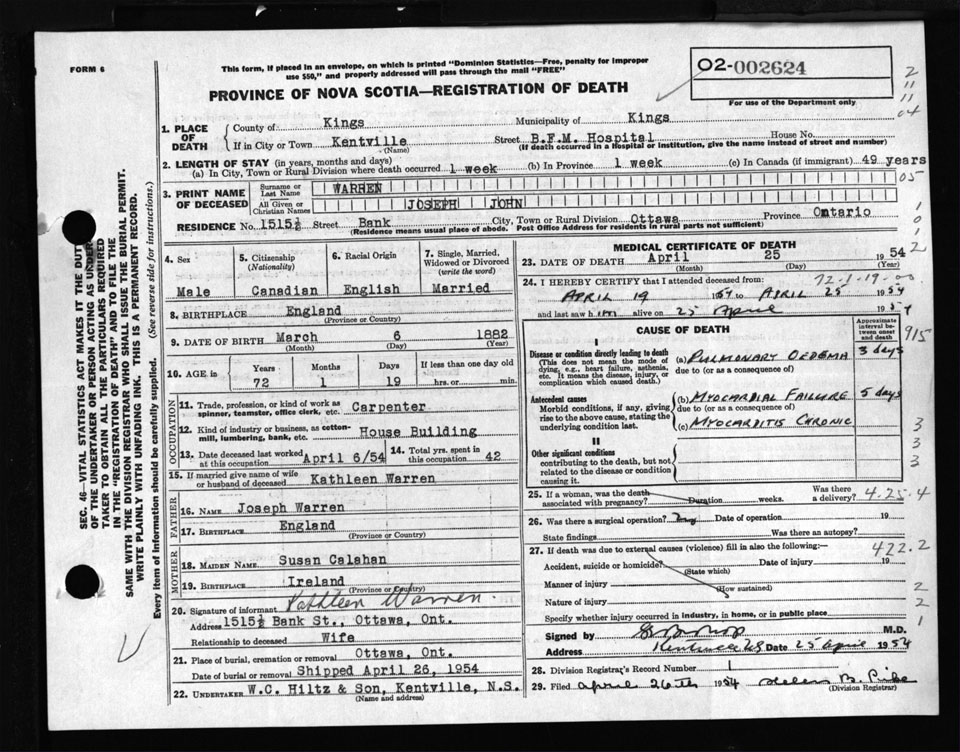 FORM 6
This form, if placed in an envelope, on which is printed "Dominion Statistics—Free, penalty for improper
use $50," and properly addressed will pass through the mail "FREE"
O2-002624
For use of the Department only
PROVINCE OF NOVA SCOTIA—REGISTRATION OF DEATH
2
11
11
04
1. PLACE OF DEATH
County of Kings Municipality of Kings
If in City or Town Kentville (Name) Street B.F.M. Hospital House No.
(If death occurred in a Hospital or Institution, give the name instead of street and number)
2. LENGTH OF STAY (in years, months and days)
(a) In City, Town or Rural Division where death occurred 1 week (b) In Province 1 week (c) In Canada (if immigrant) 49 years
05
3. PRINT NAME OF DECEASED
Surname or Last Name WARREN
All Given or Christian Names JOSEPH JOHN
RESIDENCE No. 1515½ Street Bank City, Town or Rural Division Ottawa Province Ontario
(Residence means usual place of abode. Post Office Address for residents in rural parts not sufficient)
4. Sex
Male
5. Citizenship (Nationality)
Canadian
6. Racial Origin
English
7. Single, Married, Widowed or Divorced (write the word)
Married
8. BIRTHPLACE England
(Province or Country)
9. DATE OF BIRTH March 6 1882
(Month) (Day) (Year)
10. AGE in Years Months Days If less than one day old
72 1 19 hrs. or min.
OCCUPATION
11. Trade, profession, or kind of work as spinner, teamster, office clerk, etc. Carpenter
12. Kind of industry or business, as cotton-mill, lumbering, bank, etc. House Building
13. Date deceased last worked at this occupation April 6/54
14. Total yrs. spent in this occupation 42
15. If married give name of wife or husband of deceased Kathleen Warren
FATHER
16. NAME Joseph Warren
17. BIRTHPLACE England
(Province or Country)
MOTHER
18. MAIDEN NAME Susan Calahan
19. BIRTHPLACE Ireland
(Province or Country)
20. Signature of informant Kathleen Warren.
Address 1515½ Bank St., Ottawa, Ont.
Relationship to deceased Wife
21. Place of burial, cremation or removal Ottawa, Ont.
Date of burial or removal Shipped April 26, 1954
22. UNDERTAKER W.C. Hiltz & Son, Kentville, N.S.
(Name and address)
MEDICAL CERTIFICATE OF DEATH
23. DATE OF DEATH April 25 1954
(Month) (Day) (Year)
24. I HEREBY CERTIFY that I attended deceased from:
72-1-19-00
April 19 1954 to April 25 1954
and last saw him alive on 25 April 1954
CAUSE OF DEATH
Approximate interval between onset and death
915
I
Disease or condition directly leading to death
(This does not mean the mode of dying, e.g., heart failure, asthenia, etc. It means the disease, injury, or complication which caused death.)
(a) PULMONARY OEDEMA 3 days
due to (or as a consequence of)
Antecedent causes
Morbid conditions, if any, giving rise to the above cause, stating the underlying condition last.
(b) MYOCARDIAL FAILURE 5 days
due to (or as a consequence of)
(c) MYOCARDITIS CHRONIC
3
3
3
II
Other significant conditions
contributing to the death, but not related to the disease or condition causing it.
25. If a woman, was the death associated with pregnancy? Duration weeks. Was there a delivery?
4.25.4
26. Was there a surgical operation? no Date of operation 19
State findings Was there an autopsy?
27. If death was due to external causes (violence) fill in also the following:—
422.2
Accident, suicide or homicide? (State which) Date of injury 19
Manner of injury (How sustained)
2
Nature of injury
2
Specify whether injury occurred in industry, in home, or in public place
1
Signed by M.D.
Address Kentville NS Date 25 April 1954
28. Division Registrar's Record Number 1
29. Filed April 26th 1954 Helen B.
(Division Registrar)
SEC. 46—VITAL STATISTICS ACT MAKES IT THE DUTY
OF THE UNDERTAKER OR PERSON ACTING AS UNDER-
TAKER TO OBTAIN ALL THE PARTICULARS REQUIRED
IN THE "REGISTRATION OF DEATH" AND TO FILE THE
SAME WITH THE DIVISION REGISTRAR WHO SHALL ISSUE THE BURIAL PERMIT.
WRITE PLAINLY WITH UNFADING INK. THIS IS A PERMANENT RECORD.
Every item of information should be carefully supplied. (See reverse side for instructions.)